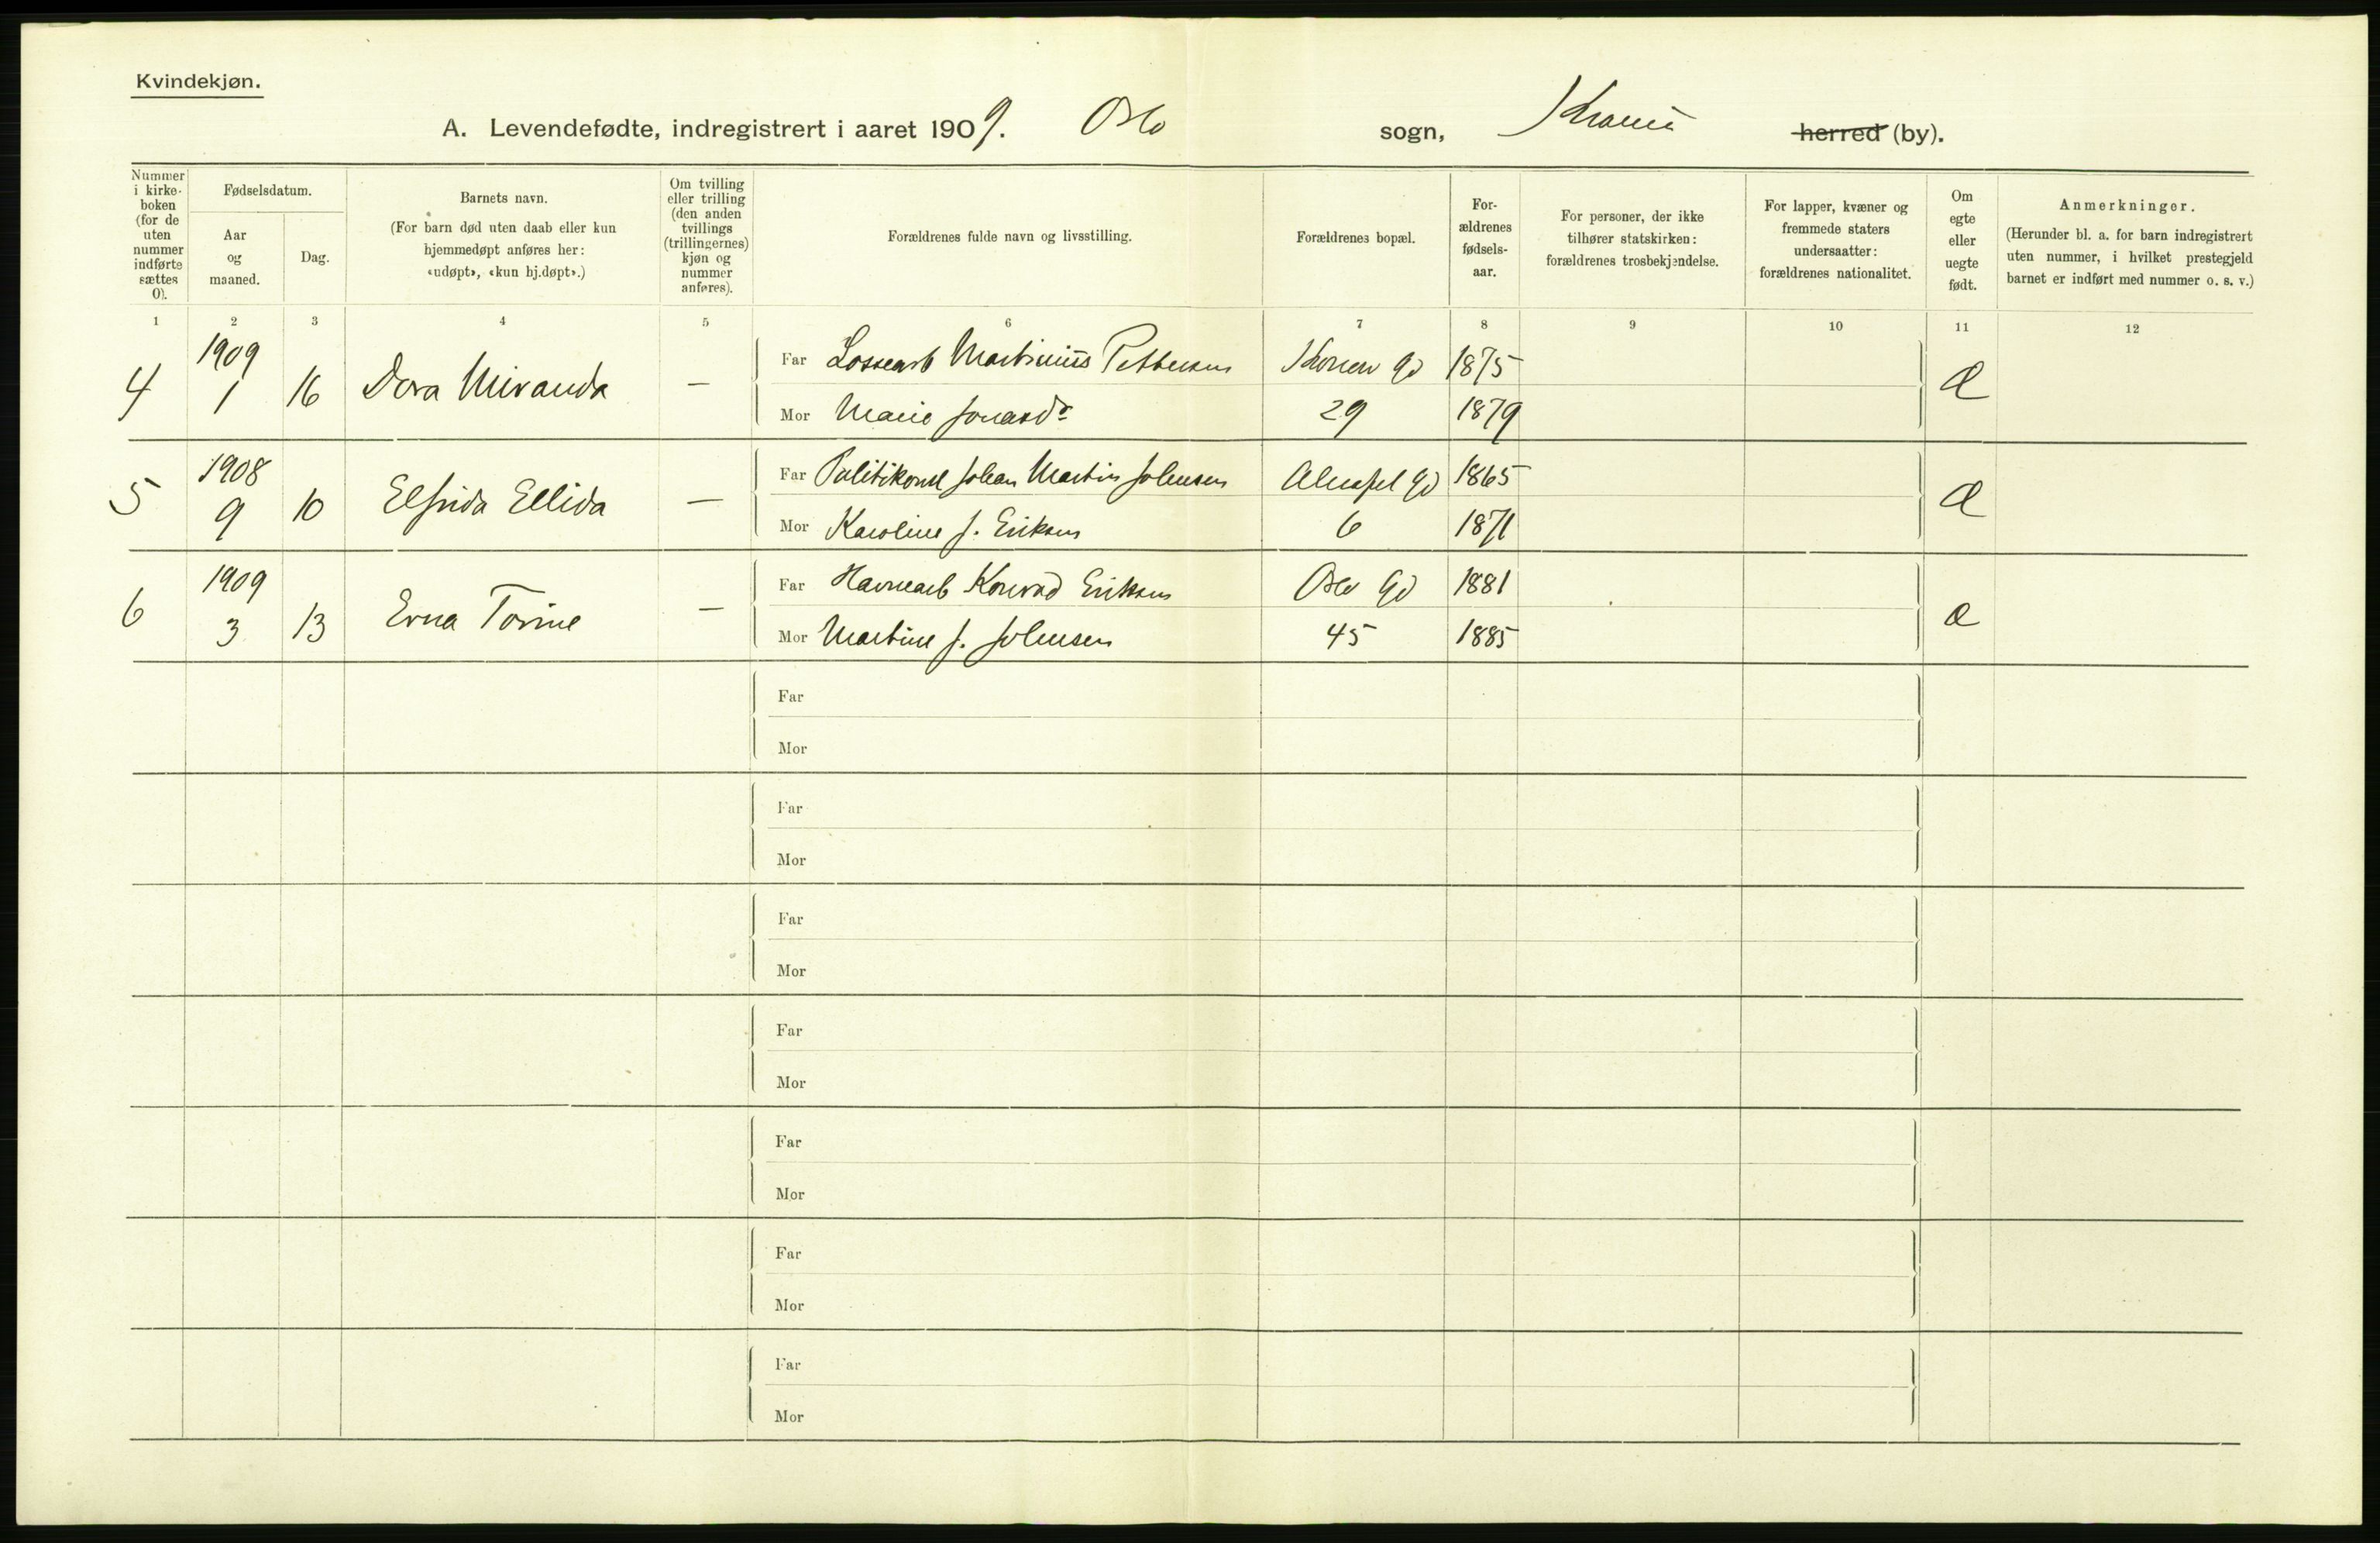 Kvindekjøn.
A. Levendefødte, indregistrert i aaret 1909. Oslo sogn, Krania herred (by).
Nummer i kirke-boken (for de uten nummer indførte sættes 0).
Fødselsdatum.
Aar og maaned.
Dag.
Barnets navn.
(For barn død uten daab eller kun hjemmedøpt anføres her: «udøpt», «kun hj.døpt».)
Om tvilling eller trilling (den anden tvillings (trillingernes) kjøn og nummer anføres).
Forældrenes fulde navn og livsstilling.
Forældrenes bopæl.
For-ældrenes fødsels-aar.
For personer, der ikke tilhører statskirken: forældrenes trosbekjendelse.
For lapper, kvæner og fremmede staters undersaatter: forældrenes nationalitet.
Om egte eller uegte født.
Anmerkninger.
(Herunder bl. a. for barn indregistrert uten nummer, i hvilket prestegjeld barnet er indført med nummer o. s. v.)
1 2 3 4 5 6 7 8 9 10 11 12
4 1909 1 16 Dora Miranda —
Far Lossearb Martinius Pettersen Gd 1875 Æ
Mor Marie Jonasdr 29 1879
5 1908 9 10 Elfrida Ellida —
Far Politikonst Johan Martin Johnsen Gd 1865 Æ
Mor Karoline f. Eriksen 6 1871
6 1909 3 13 Erna Torine —
Far Havnearb Konrad Eriksen Oslo Gd 1881 Æ
Mor Martine f. Johnsen 45 1885
Far
Mor
Far
Mor
Far
Mor
Far
Mor
Far
Mor
Far
Mor
Far
Mor